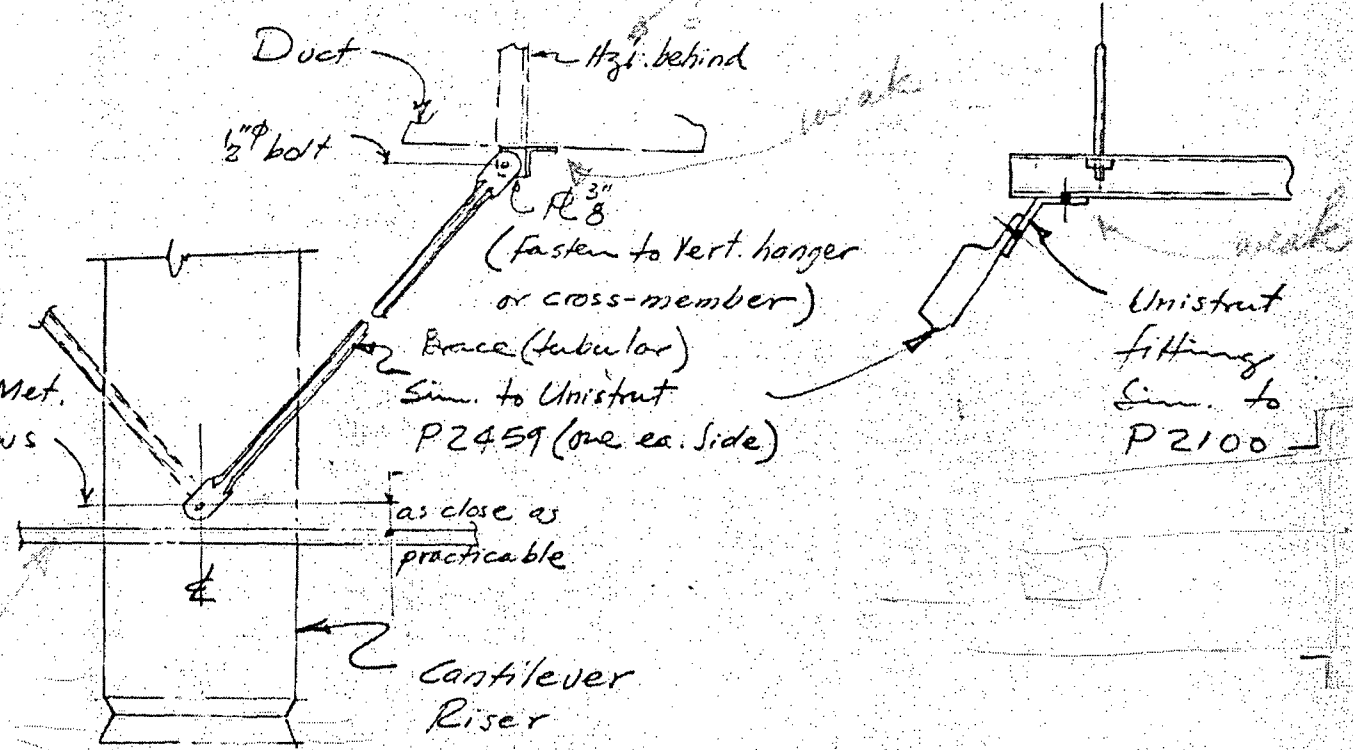 Duct
Hzl. behind
weak
1/2"φ bolt
PL 3/8"
(fasten to Vert. hanger
or cross-member)
Brace (tubular)
Sim. to Unistrut
P2459 (one ea. side)
Met.
as close as
practicable
℄
Cantilever
Riser
weak
Unistrut
fitting
Sim. to
P2100